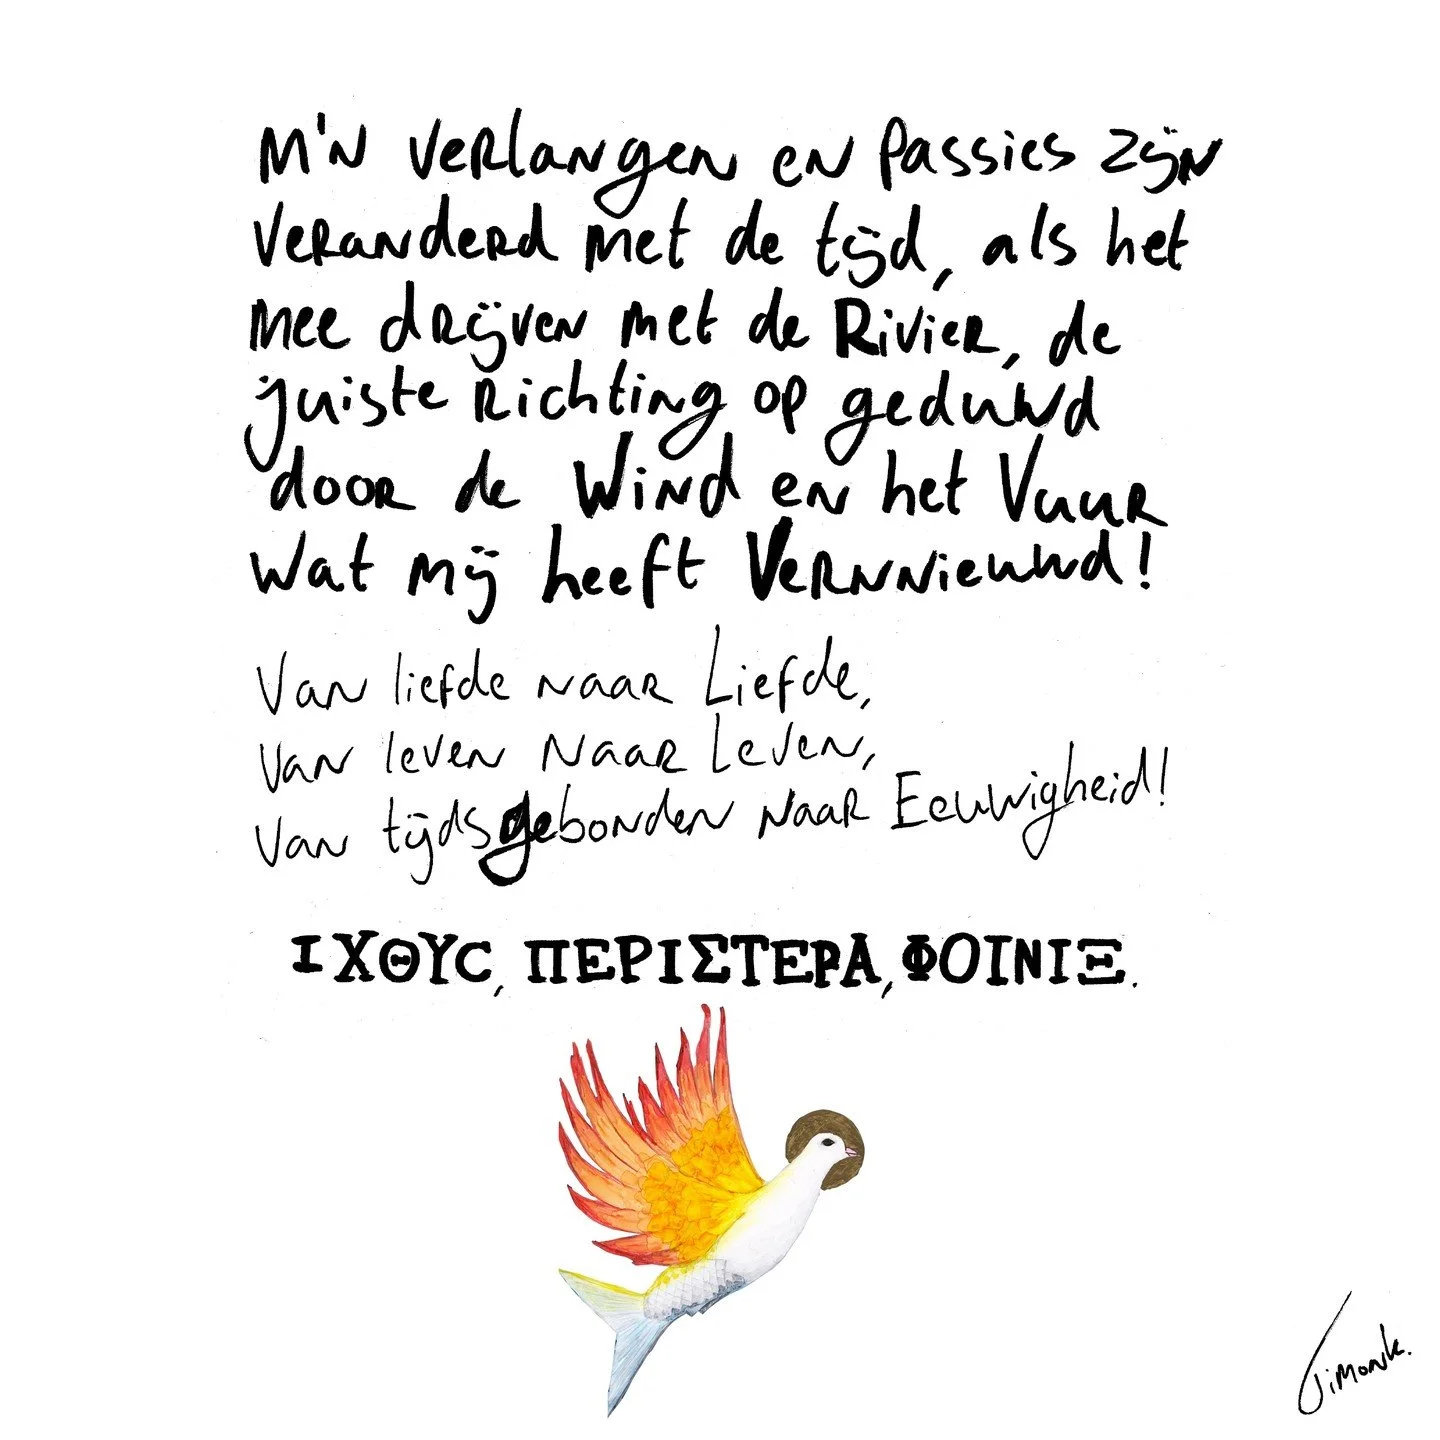 M'n verlangen en Passies zijn
veranderd met de tijd, als het
mee drijven met de Rivier, de
juiste richting op geduwd
door de Wind en het Vuur
wat mij heeft Vernnieuwd!
Van liefde naar Liefde,
van leven naar Leven,
van tijdsgebonden naar Eeuwigheid!
ΙΧΘΥC, ΠΕΡΙΣΤΕΡΑ, ΦΟΙΝΙΞ.
Timonk.